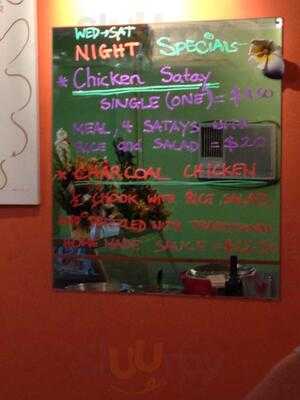 WED→SAT
NIGHT SPECIALS
* Chicken Satay
SINGLE (ONE) =
MEAL, 4 SATAYS WITH
RICE and SALAD = $20
* CHARCOAL CHICKEN
½ CHOOK WITH RICE, SALAD,
AND DRIZZLED WITH TRADITIONAL
HOME MADE SAUCE =